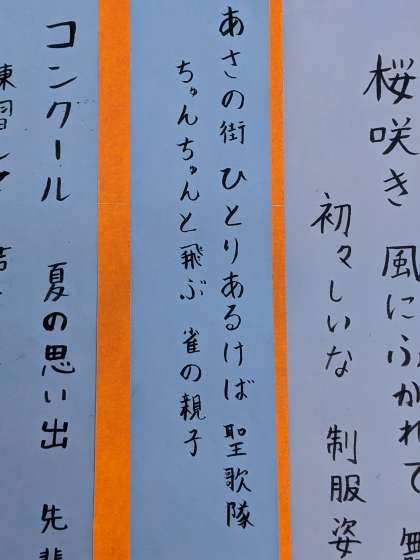 桜咲き 風にふかれて
初々しいな 制服姿
あさの街 ひとりあるけば 聖歌隊
ちゅんちゅんと飛ぶ 雀の親子
コンクール 夏の思い出 先輩
練習